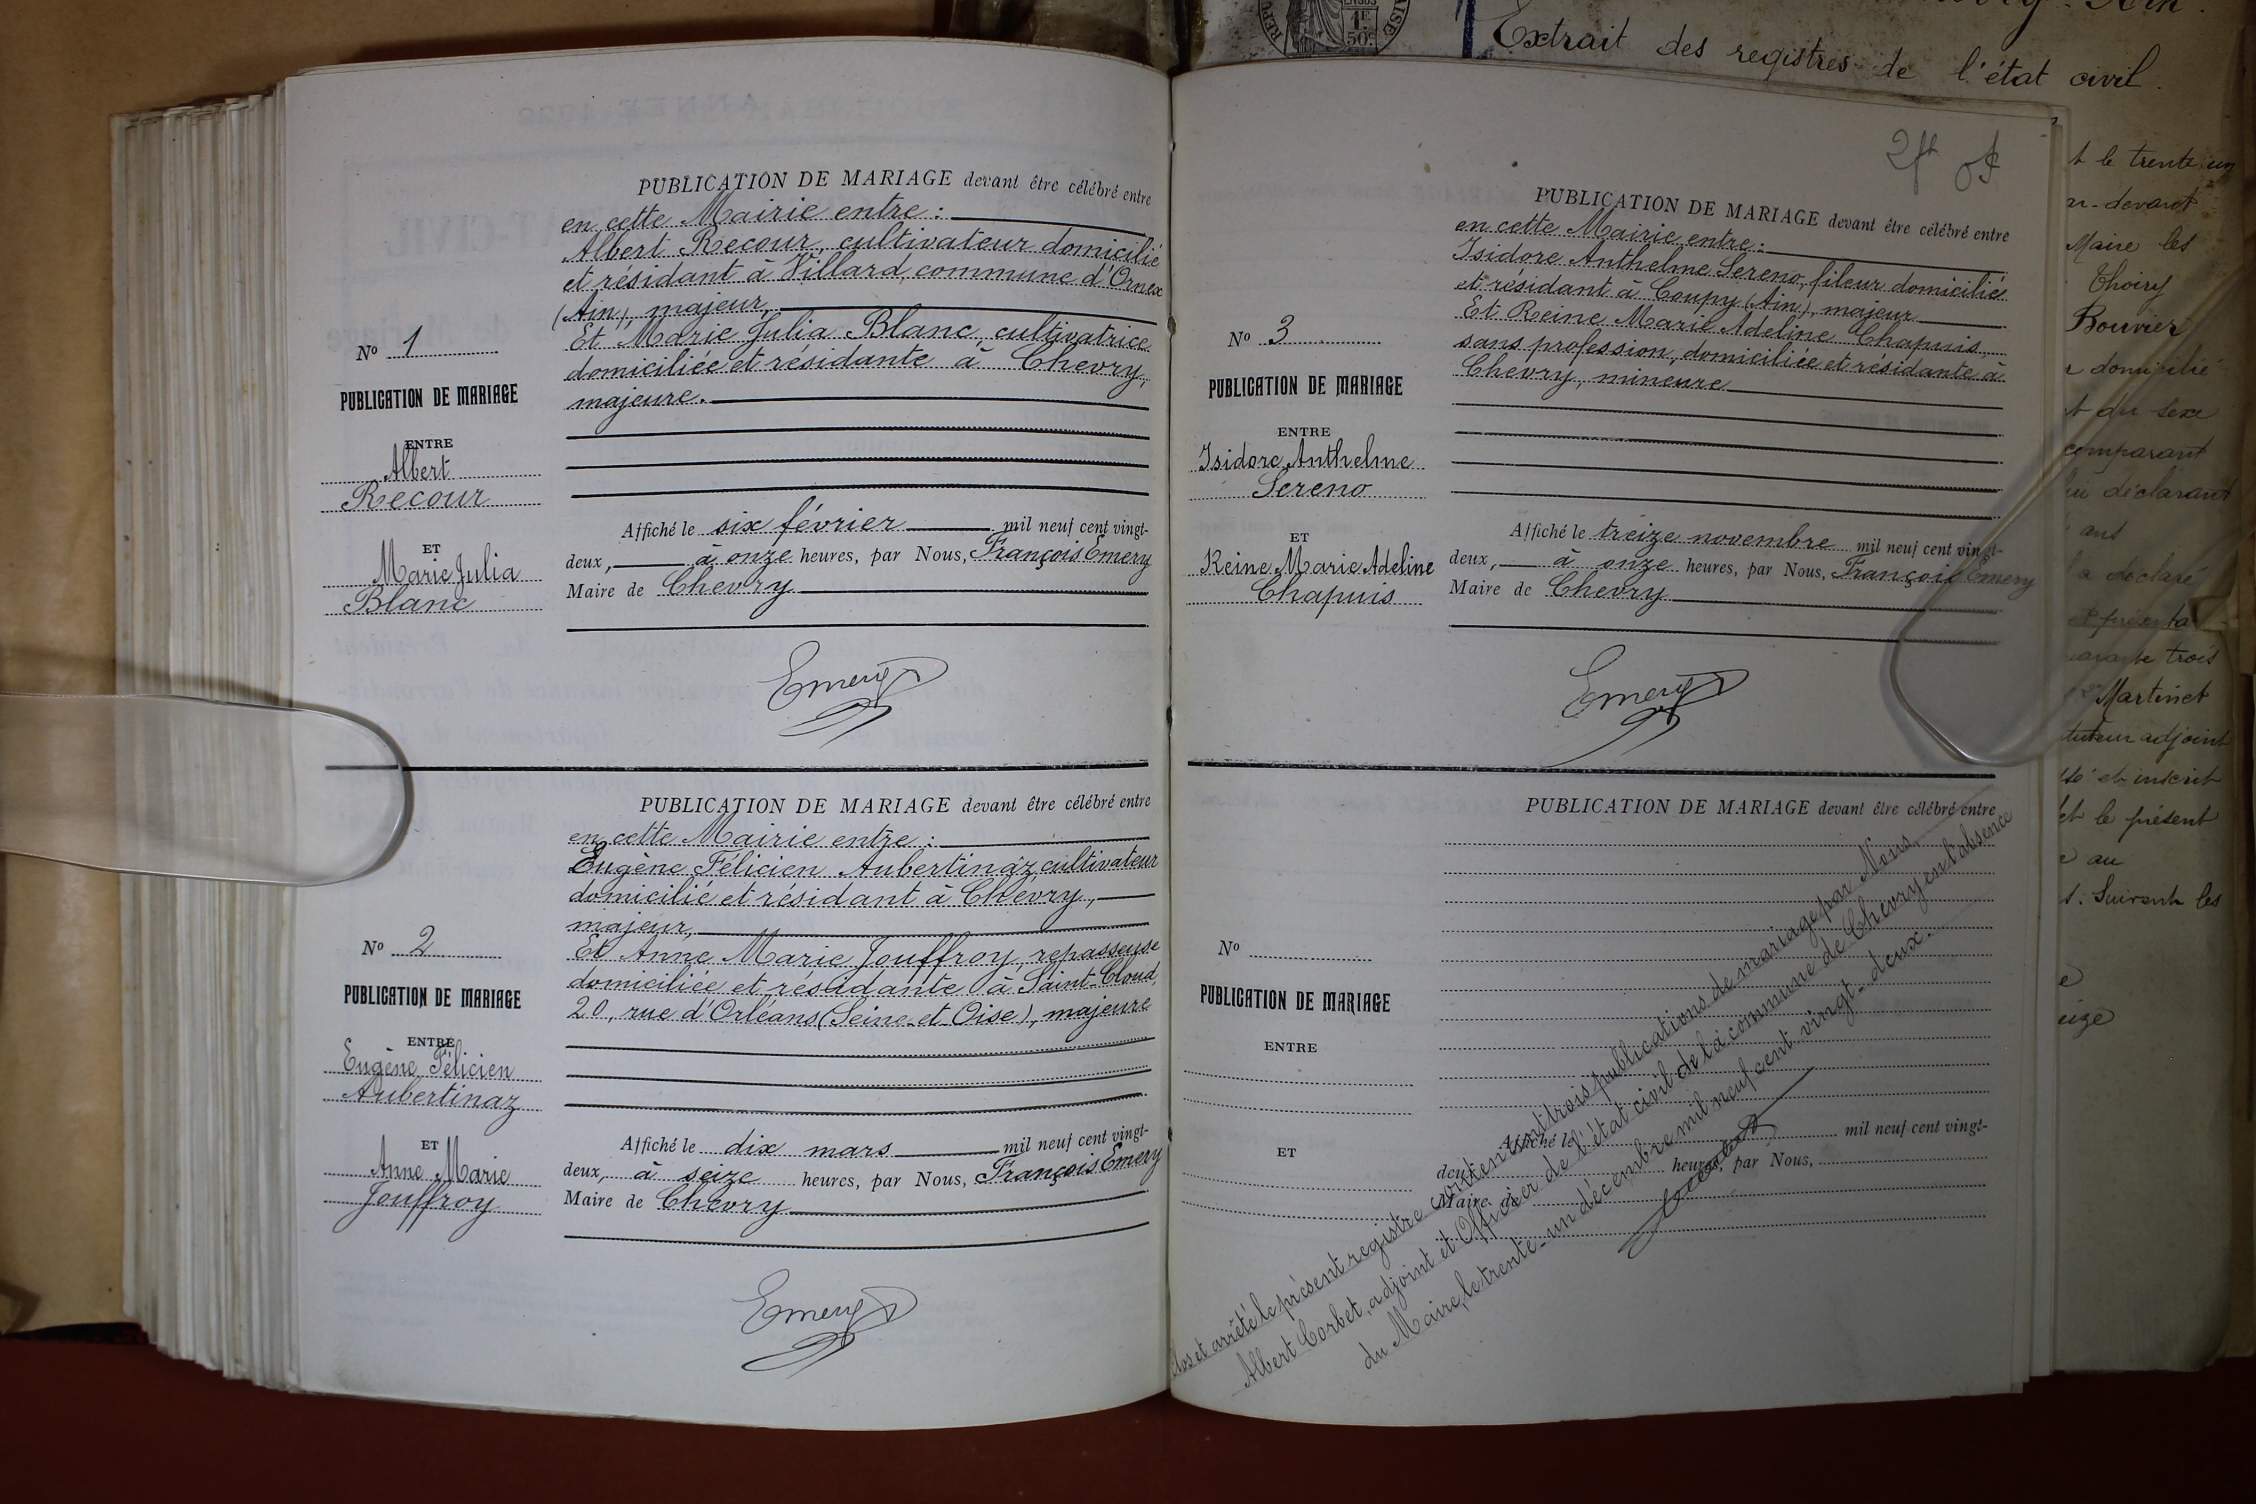 PUBLICATION DE MARIAGE devant être célébré entre
en cette Mairie entre :
Albert Recour, cultivateur domicilié
et résidant à Villard, commune d'Ornex
(Ain), majeur,
Et Marie Julia Blanc, cultivatrice
domiciliée et résidante à Chevry,
majeure.
No 1
PUBLICATION DE MARIAGE
ENTRE
Albert
Recour
ET
Marie Julia
Blanc
Affiché le six février mil neuf cent vingt-
deux, à onze heures, par Nous, François Emery
Maire de Chevry
Emery
PUBLICATION DE MARIAGE devant être célébré entre
en cette Mairie entre :
Eugène Félicien Aubertinaz, cultivateur
domicilié et résidant à Chevry,
majeur,
Et Anne Marie Jouffroy, repasseuse
domiciliée et résidante à Saint-Cloud,
20, rue d'Orléans (Seine-et-Oise), majeure
No 2
PUBLICATION DE MARIAGE
ENTRE
Eugène Félicien
Aubertinaz
ET
Anne Marie
Jouffroy
Affiché le dix mars mil neuf cent vingt-
deux, à seize heures, par Nous, François Emery
Maire de Chevry
Emery
PUBLICATION DE MARIAGE devant être célébré entre
en cette Mairie entre :
Isidore Anthelme Sereno, fileur domicilié
et résidant à Coupy (Ain), majeur
Et Reine Marie Adeline Chapuis,
sans profession, domiciliée et résidante à
Chevry, mineure
No 3
PUBLICATION DE MARIAGE
ENTRE
Isidore Anthelme
Sereno
ET
Reine Marie Adeline
Chapuis
Affiché le treize novembre mil neuf cent vingt-
deux, à onze heures, par Nous, François Emery
Maire de Chevry
Emery
PUBLICATION DE MARIAGE devant être célébré entre
No
PUBLICATION DE MARIAGE
ENTRE
ET
Affiché le mil neuf cent vingt-
deux, heures, par Nous,
Maire de
Clos et arrêté le présent registre contenant trois publications de mariage par Nous
Albert Corbet, adjoint et Officier de l'état civil de la commune de Chevry en l'absence
du Maire, le trente-un décembre mil neuf cent vingt-deux.
Extrait des registres de l'état civil.
le trente un
devant
Maire les
Thoiry
Bouvier
domicilié
du sexe
comparant
déclarant
ans
a déclaré
trois
Martinet
adjoint
et inscrit
le présent
au
Suivent les